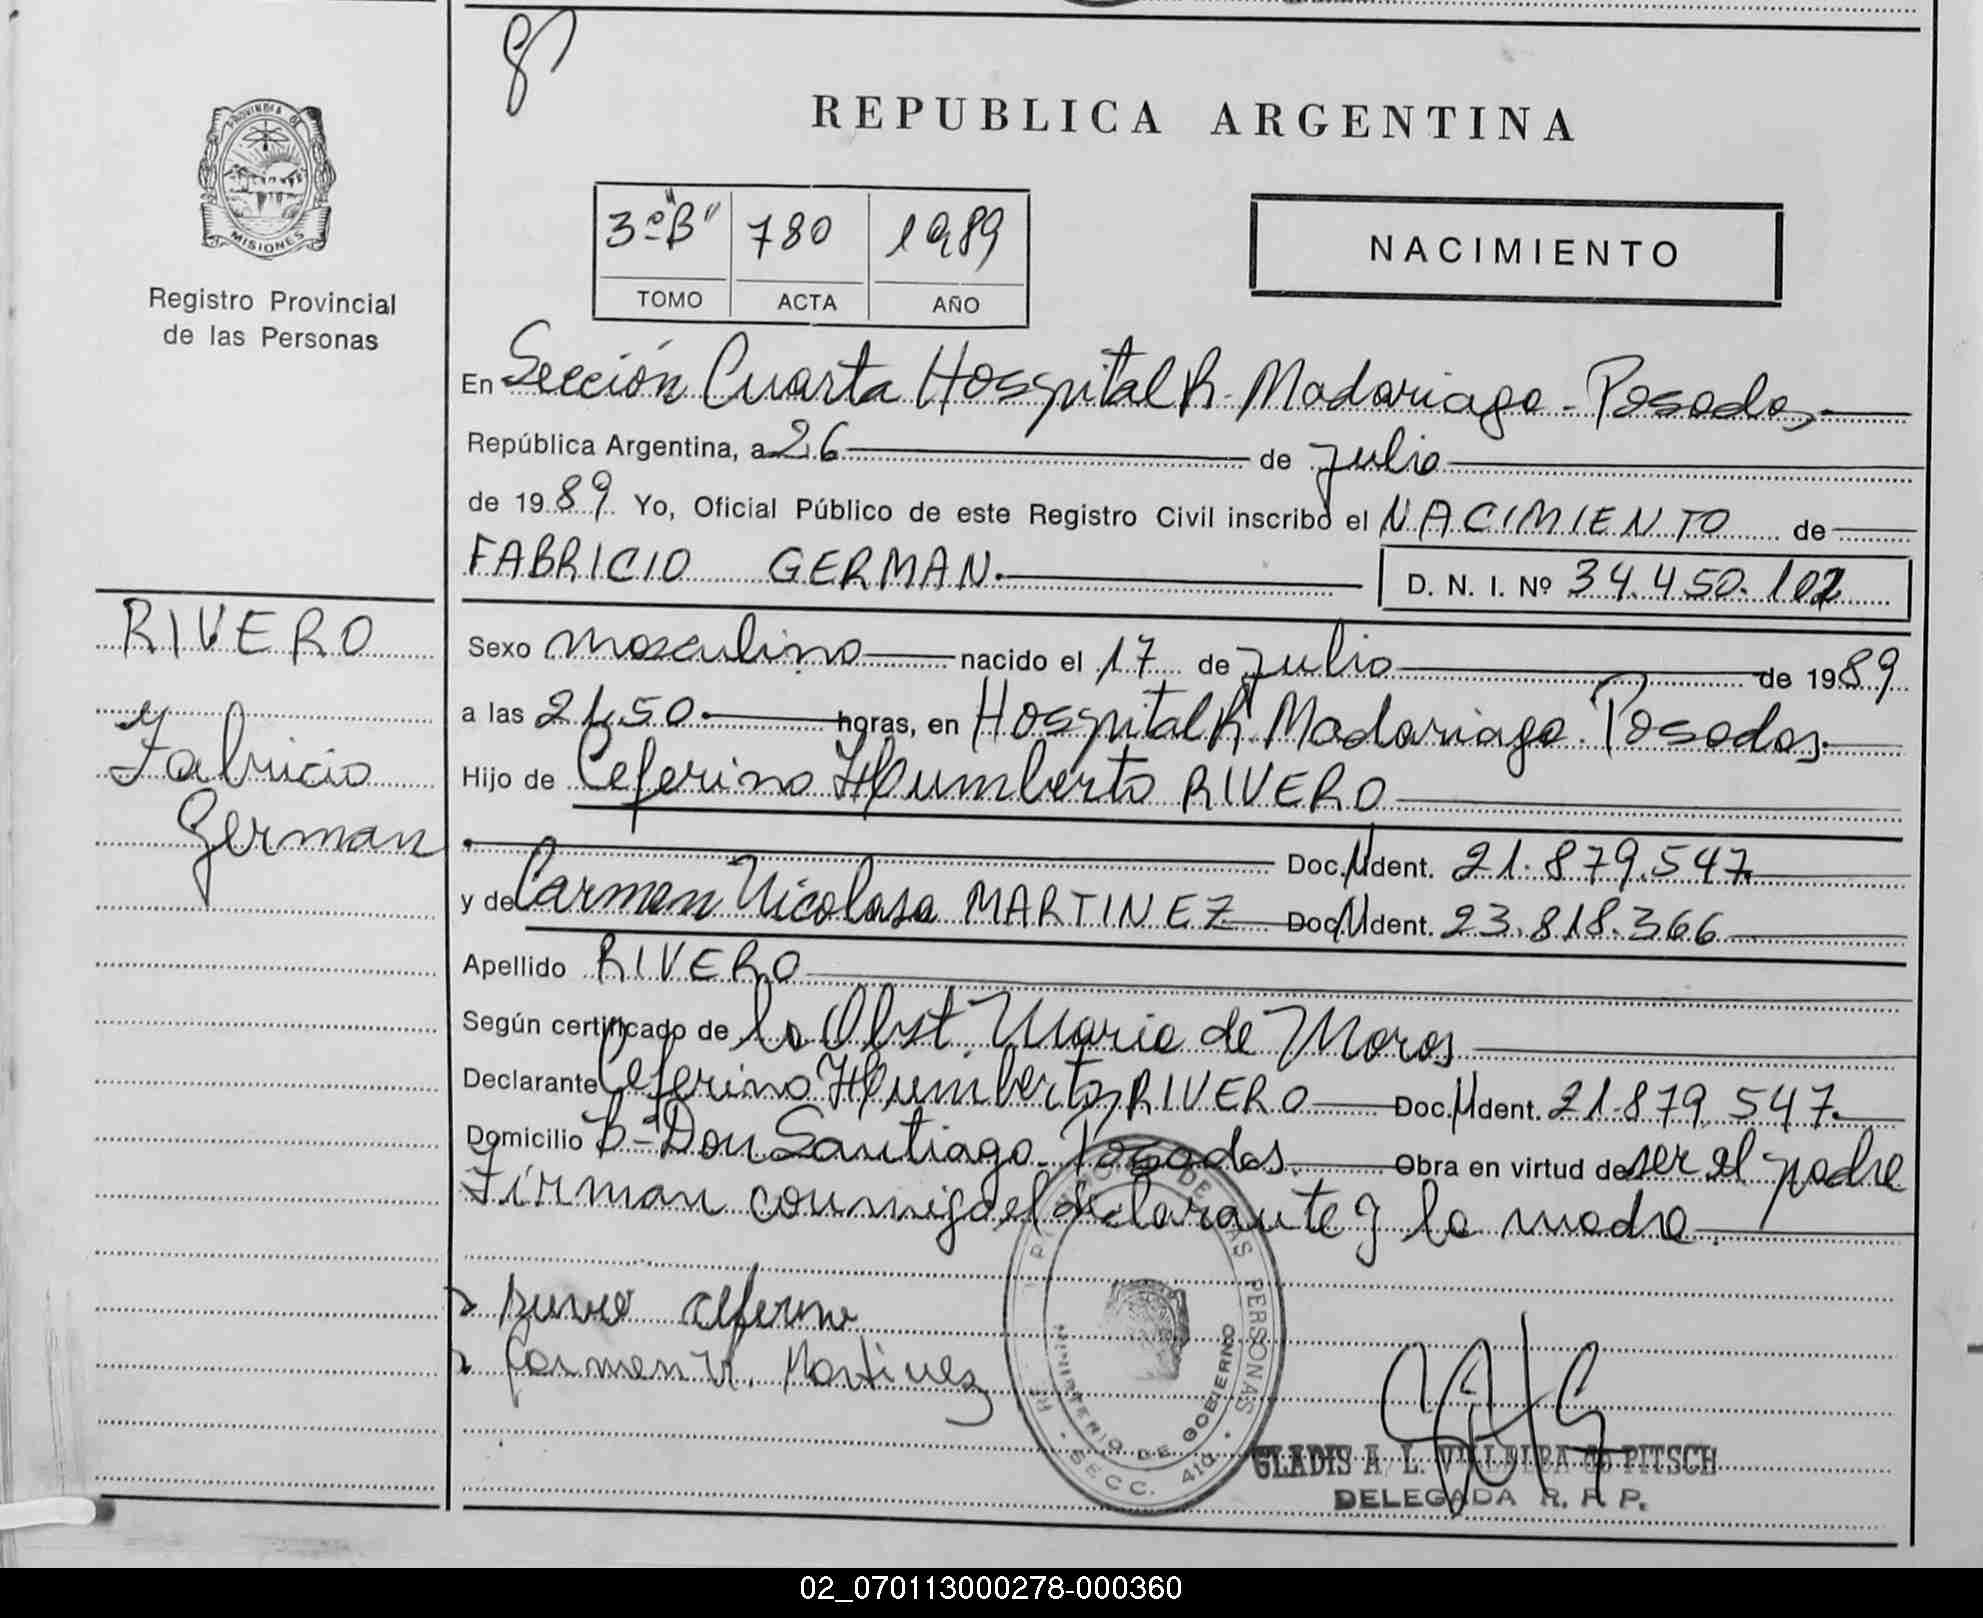 REPUBLICA ARGENTINA
PROVINCIA DE
MISIONES
Registro Provincial
de las Personas
3º "B" 780 1989
TOMO ACTA AÑO
NACIMIENTO
En Sección Cuarta Hospital R. Madariaga - Posadas
República Argentina, a 26 de julio
de 1989 Yo, Oficial Público de este Registro Civil inscribo el NACIMIENTO de
FABRICIO GERMAN. D. N. I. Nº 34.450.102
RIVERO
Fabricio
German
Sexo masculino nacido el 17 de julio de 1989
a las 21,50 horas, en Hospital R. Madariaga. Posadas.
Hijo de Ceferino Humberto RIVERO
Doc. Ident. 21.879.547.
y de Carmen Nicolasa MARTINEZ Doc. Ident. 23.818.366
Apellido RIVERO
Según certificado de la Obst. Maria de Moros
Declarante Ceferino Humberto RIVERO Doc. Ident. 21.879.547.
Domicilio Bº Don Santiago. Posadas. Obra en virtud de ser el padre
Firman conmigo el declarante y la madre.
Rivero Ceferino
Carmen N. Martinez
DE LAS PERSONAS
MINISTERIO DE GOBIERNO
SECC. 4ta.
GLADIS A. L. VILLALBA de PITSCH
DELEGADA R. P. P.
02_070113000278-000360